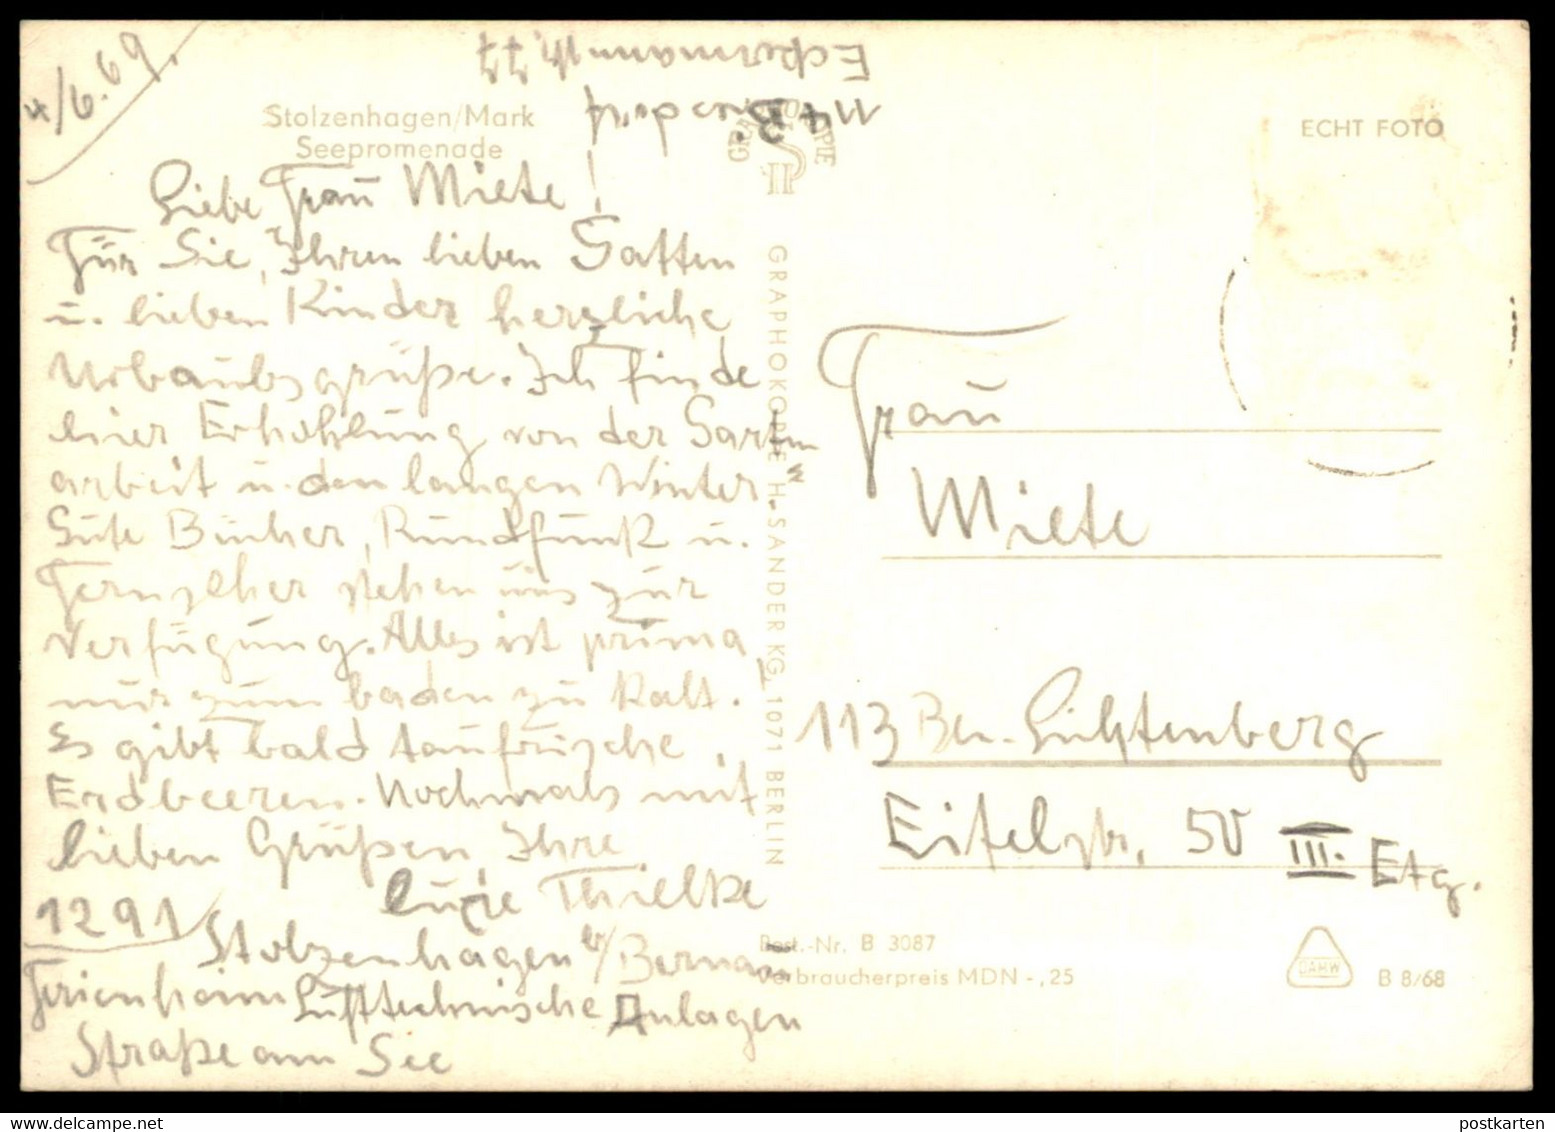 4/6.69.
Stolzenhagen/Mark
Seepromenade
Liebe Frau Miete!
Für Sie, Ihren lieben Gatten
u. lieben Kinder herzliche
Urlaubsgrüße. Ich finde
hier Erhohlung von der Garten
arbeit u. den langen Winter
Gute Bücher, Rundfunk u.
Fernseher stehen uns zur
Verfügung. Alles ist prima
nur zum baden zu kalt.
Es gibt bald taufrische
Erdbeeren. Nochmals mit
lieben Grüßen, Ihre
Luzie Thielke
1291
Stolzenhagen b/Bernau
Ferienheim Lufttechnische Anlagen
Straße am See
Eckermannstr. 77
GRAPHOKOPIE H. SANDER KG, 1071 BERLIN
ECHT FOTO
Frau
Miete
113 Bln.-Lichtenberg
Eitelstr. 50 III. Etg.
Best.-Nr. B 3087
Verbraucherpreis MDN -,25
DAHW
B 8/68
postkarten